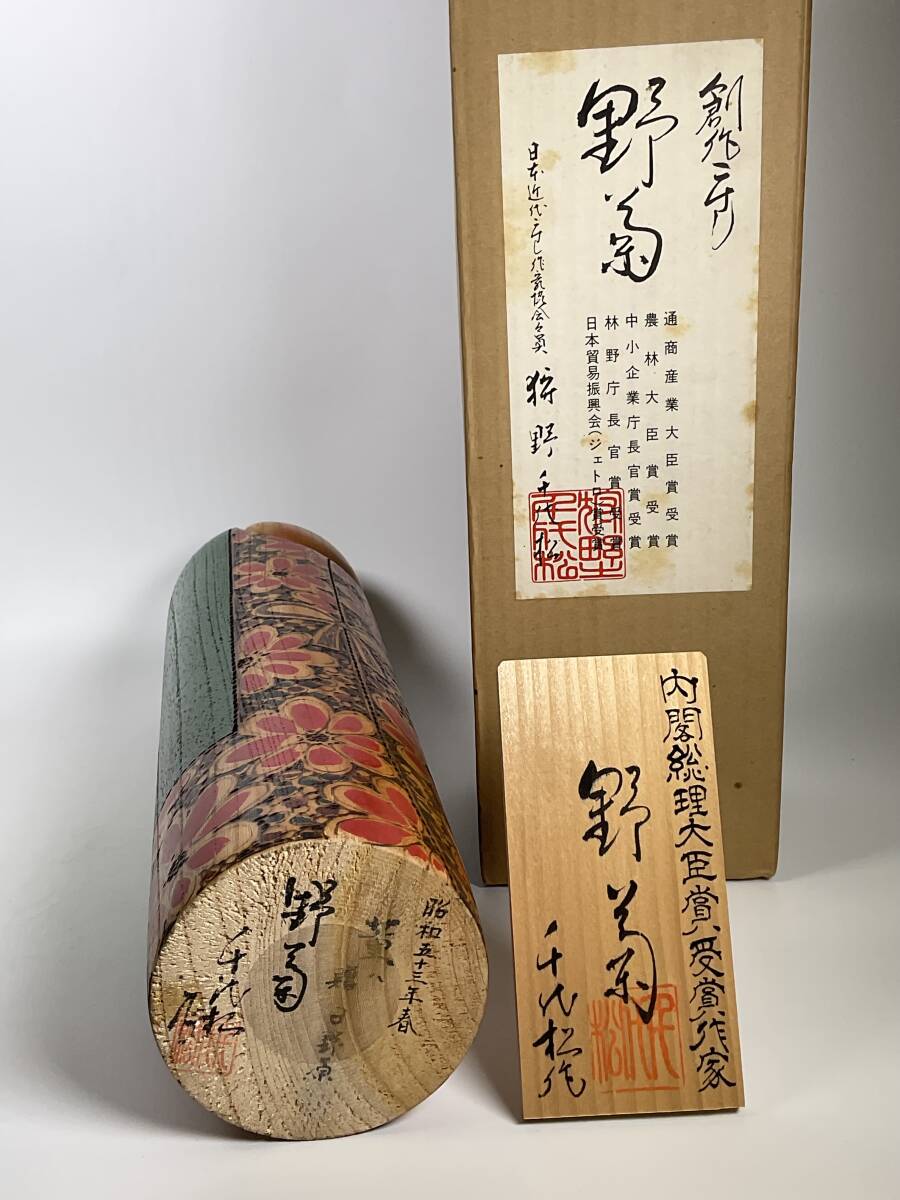 創作こけし
野菊
通商産業大臣賞受賞
農林大臣賞受賞
中小企業庁長官賞受賞
林野庁長官賞受賞
日本貿易振興会(ジェトロ)賞受賞
日本近代こけし作家協会々員 狩野千代松
狩野千代松
内閣総理大臣賞受賞作家
野菊
千代松作
千代松
昭和五十三年春
野菊
千代松